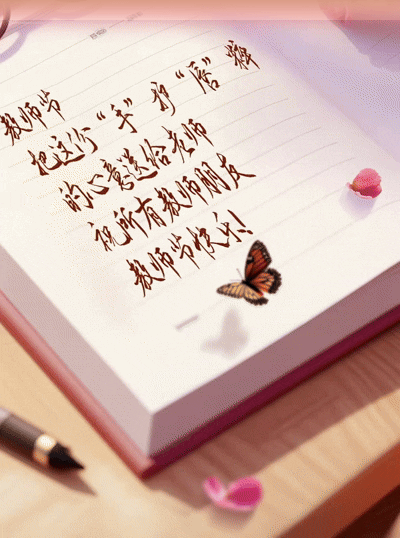 教师节
把这份“手”护“唇”粹
的心意送给老师
祝所有教师朋友
教师节快乐!